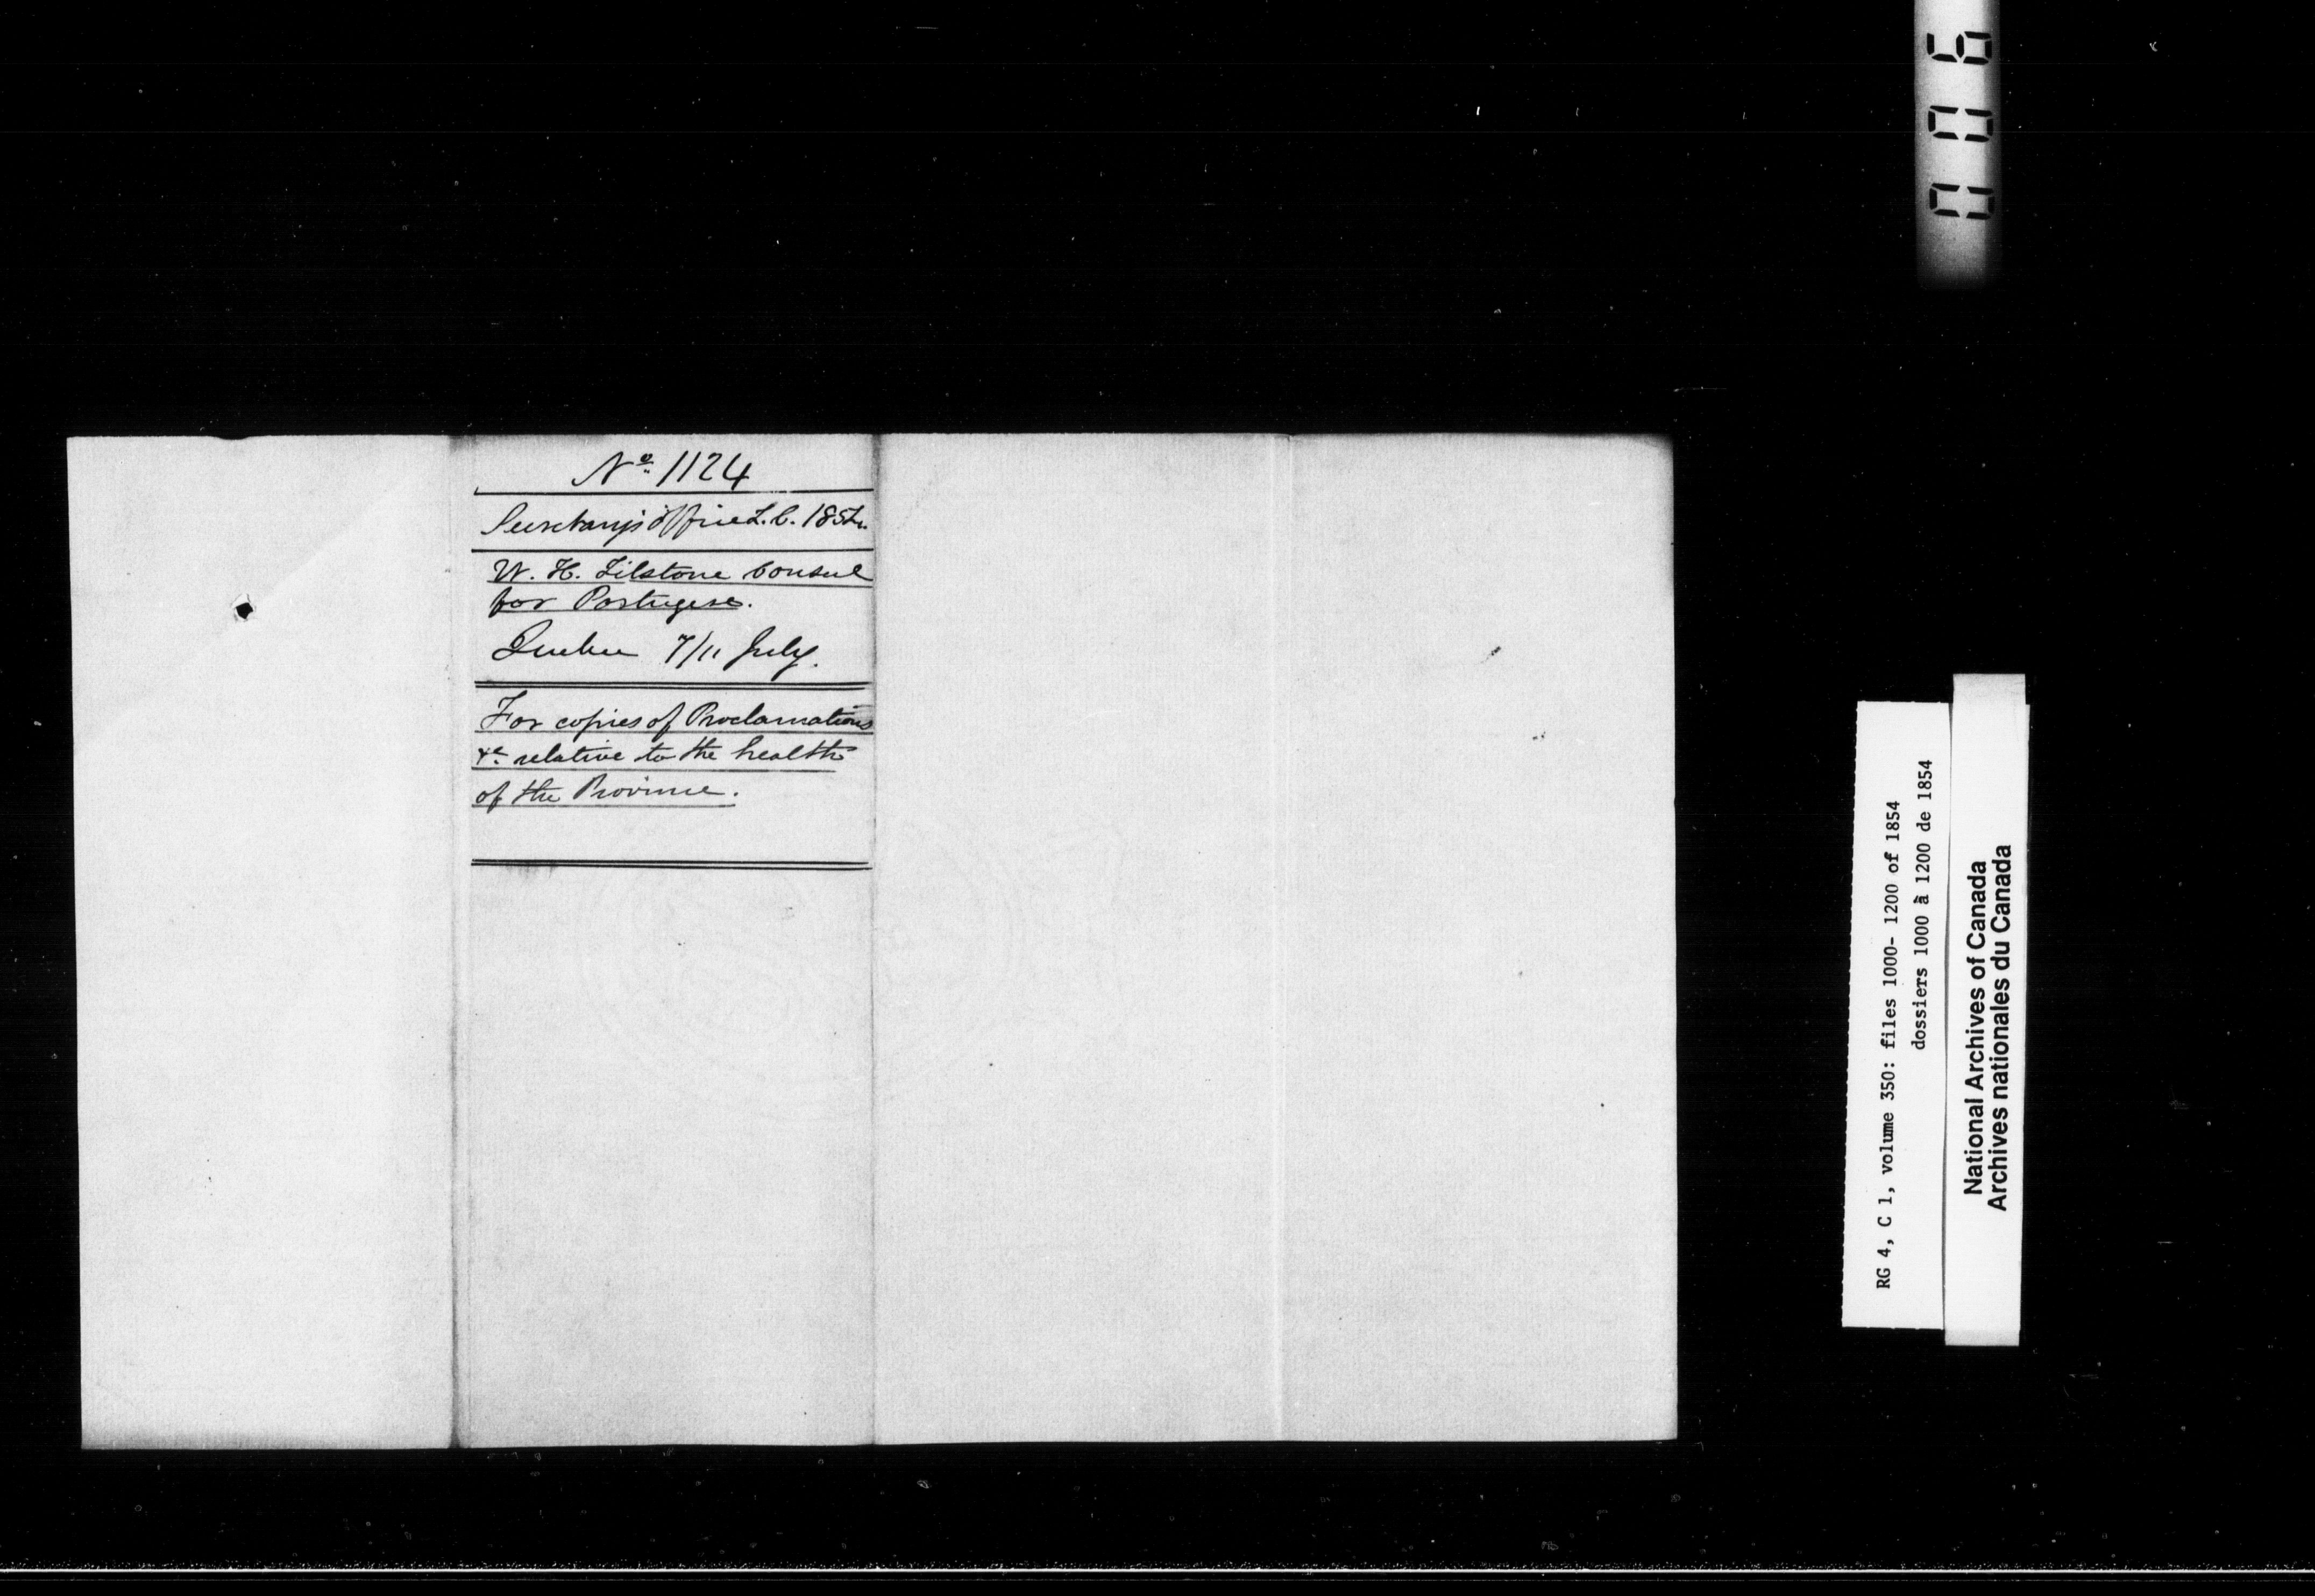 Nº 1124
Secretary's Office L.C. 1854.
W. H. Tilstone Consul
for Portugese.
Quebec 7/11 July.
For copies of Proclamations
&c relative to the health
of the Province.
006
RG 4, C 1, volume 350: files 1000- 1200 of 1854
dossiers 1000 à 1200 de 1854
National Archives of Canada
Archives nationales du Canada